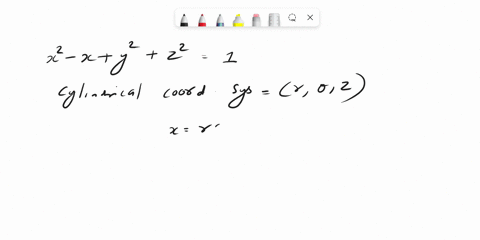 x² - x + y² + z² = 1
Cylinerical coord. Sys = (r, θ, z)
x = r